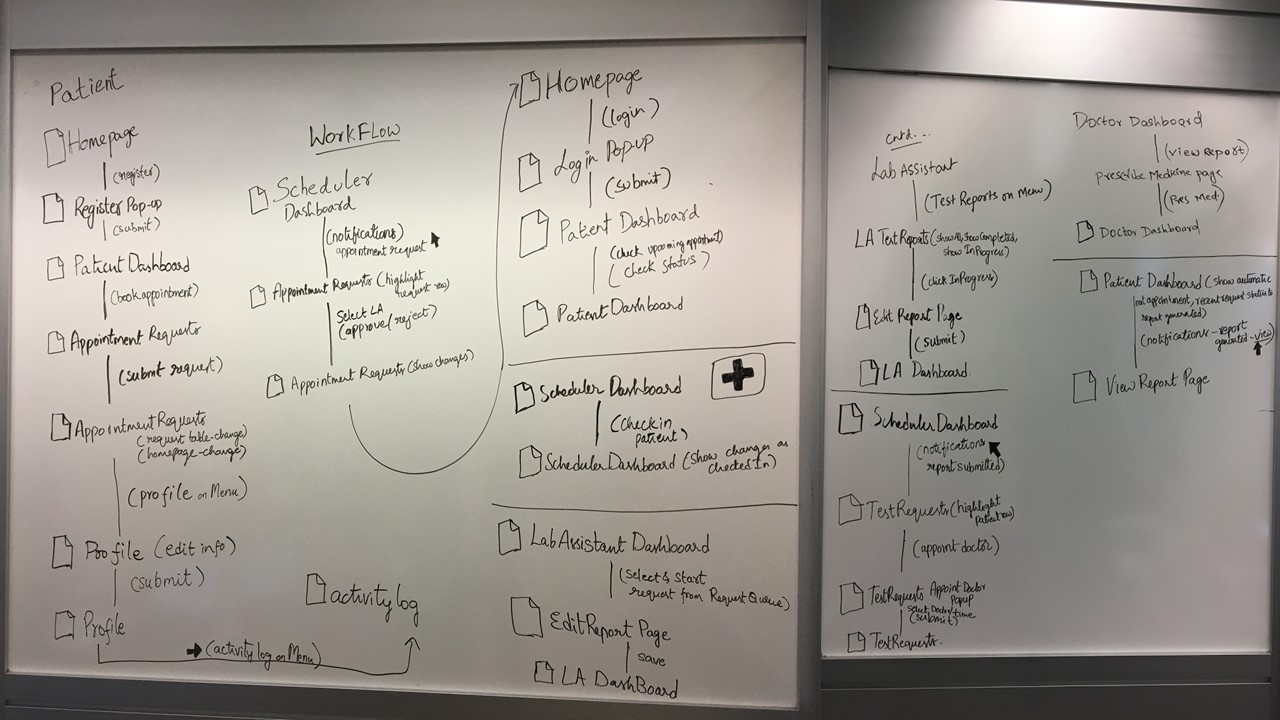 Patient
Homepage
(register)
Register Pop-up
(submit)
Patient Dashboard
(book appointment)
Appointment Requests
(submit request)
Appointment Requests
(request table-change)
(homepage-change)
(profile on Menu)
Profile (edit info)
(submit)
Profile
(activity log on Menu)
activity log
WORKFLOW
Scheduler
Dashboard
(notifications)
appointment request
Appointment Requests (highlight
request row)
Select LA
(approve/reject)
Appointment Requests (show changes)
Homepage
(login)
Login Pop-up
(submit)
Patient Dashboard
(check upcoming appointment)
(check status)
Patient Dashboard
Scheduler Dashboard
(check in
patient)
Scheduler Dashboard (show changes as
checked In)
Lab Assistant Dashboard
(select & start
request from Request Queue)
Edit Report Page
save
LA DashBoard
cntd...
Lab Assistant
(Test Reports on Menu)
LA Test Reports (show All, show Completed,
show InProgress)
(click InProgress)
Edit Report Page
(submit)
LA Dashboard.
Scheduler Dashboard
(notifications
report submitted)
Test Requests (highlight
patient row)
(appoint doctor)
Test Requests Appoint Doctor
Popup
select Doctor/time
(submit)
Test Requests.
Doctor Dashboard
(view Report)
prescribe Medicine page
(Pres Med)
Doctor Dashboard
Patient Dashboard (show automatic
appointment, recent request status to
report generated)
(notifications - report
generated - view)
View Report Page